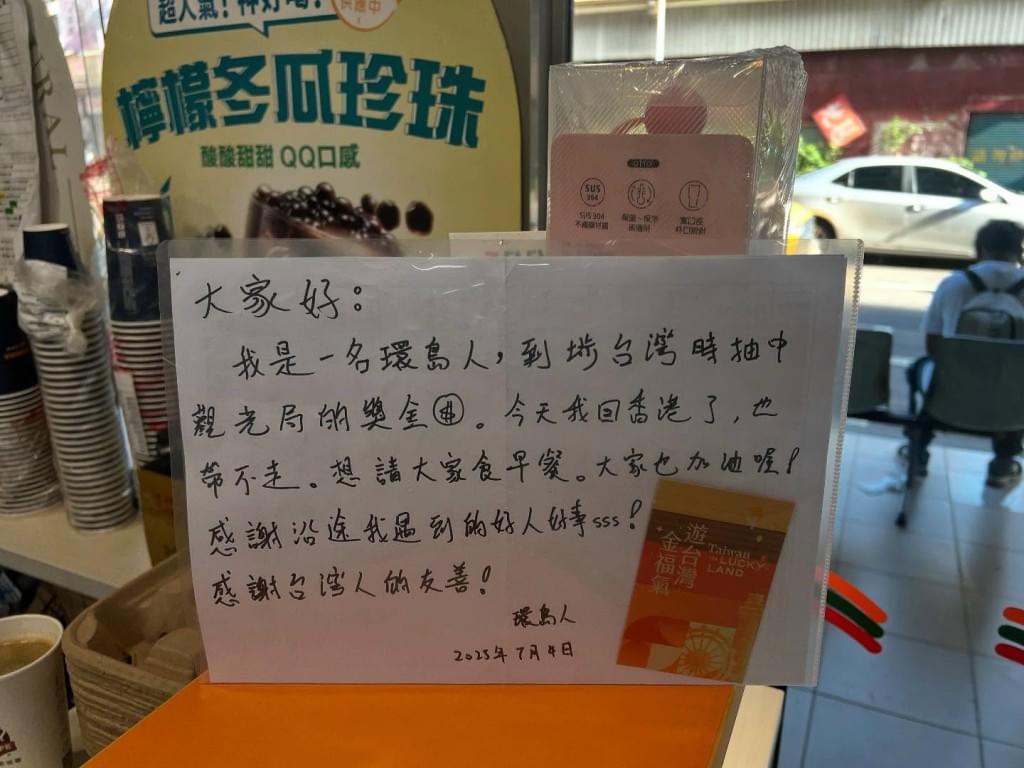 超人氣！神好喝！
供應中
檸檬冬瓜珍珠
酸酸甜甜 QQ口感
SUS
304
SUS 304
不鏽鋼材質
大家好：
我是一名環島人，到埗台灣時抽中
觀光局的獎金。今天我回香港了，也
帶不走。想請大家食早餐。大家也加油喔！
感謝沿途我遇到的好人好事sss！
感謝台灣人的友善！
環島人
2025年7月4日
遊台灣
金福氣
Taiwan
LUCKY
LAND